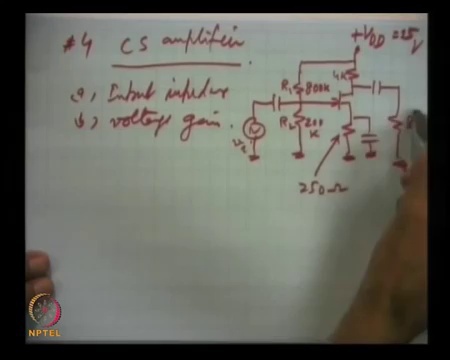 #4 CS amplifier
a, Input impedance
b, voltage gain.
+VDD = 25V
4k
R1 800k
R2 200 K
Vs
250Ω
NPTEL